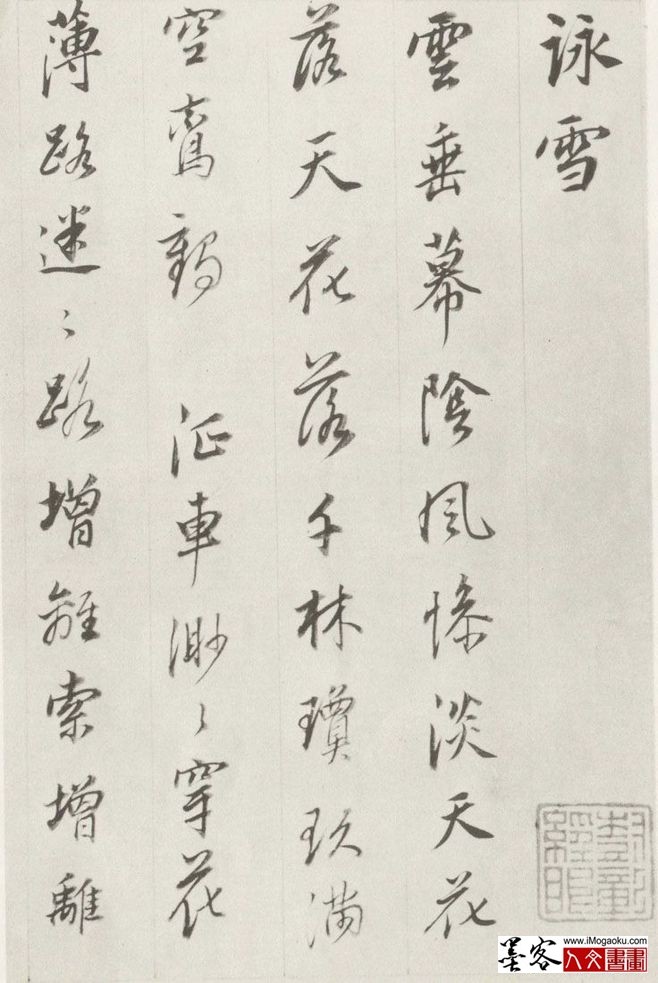 詠雪
雲垂幕陰風慘淡天花
落天花落千林瓊玖滿
空鸞鶴 征車渺〻穿花
薄路迷〻路增離索增離
www.iMogaoku.com
墨客人文書畫